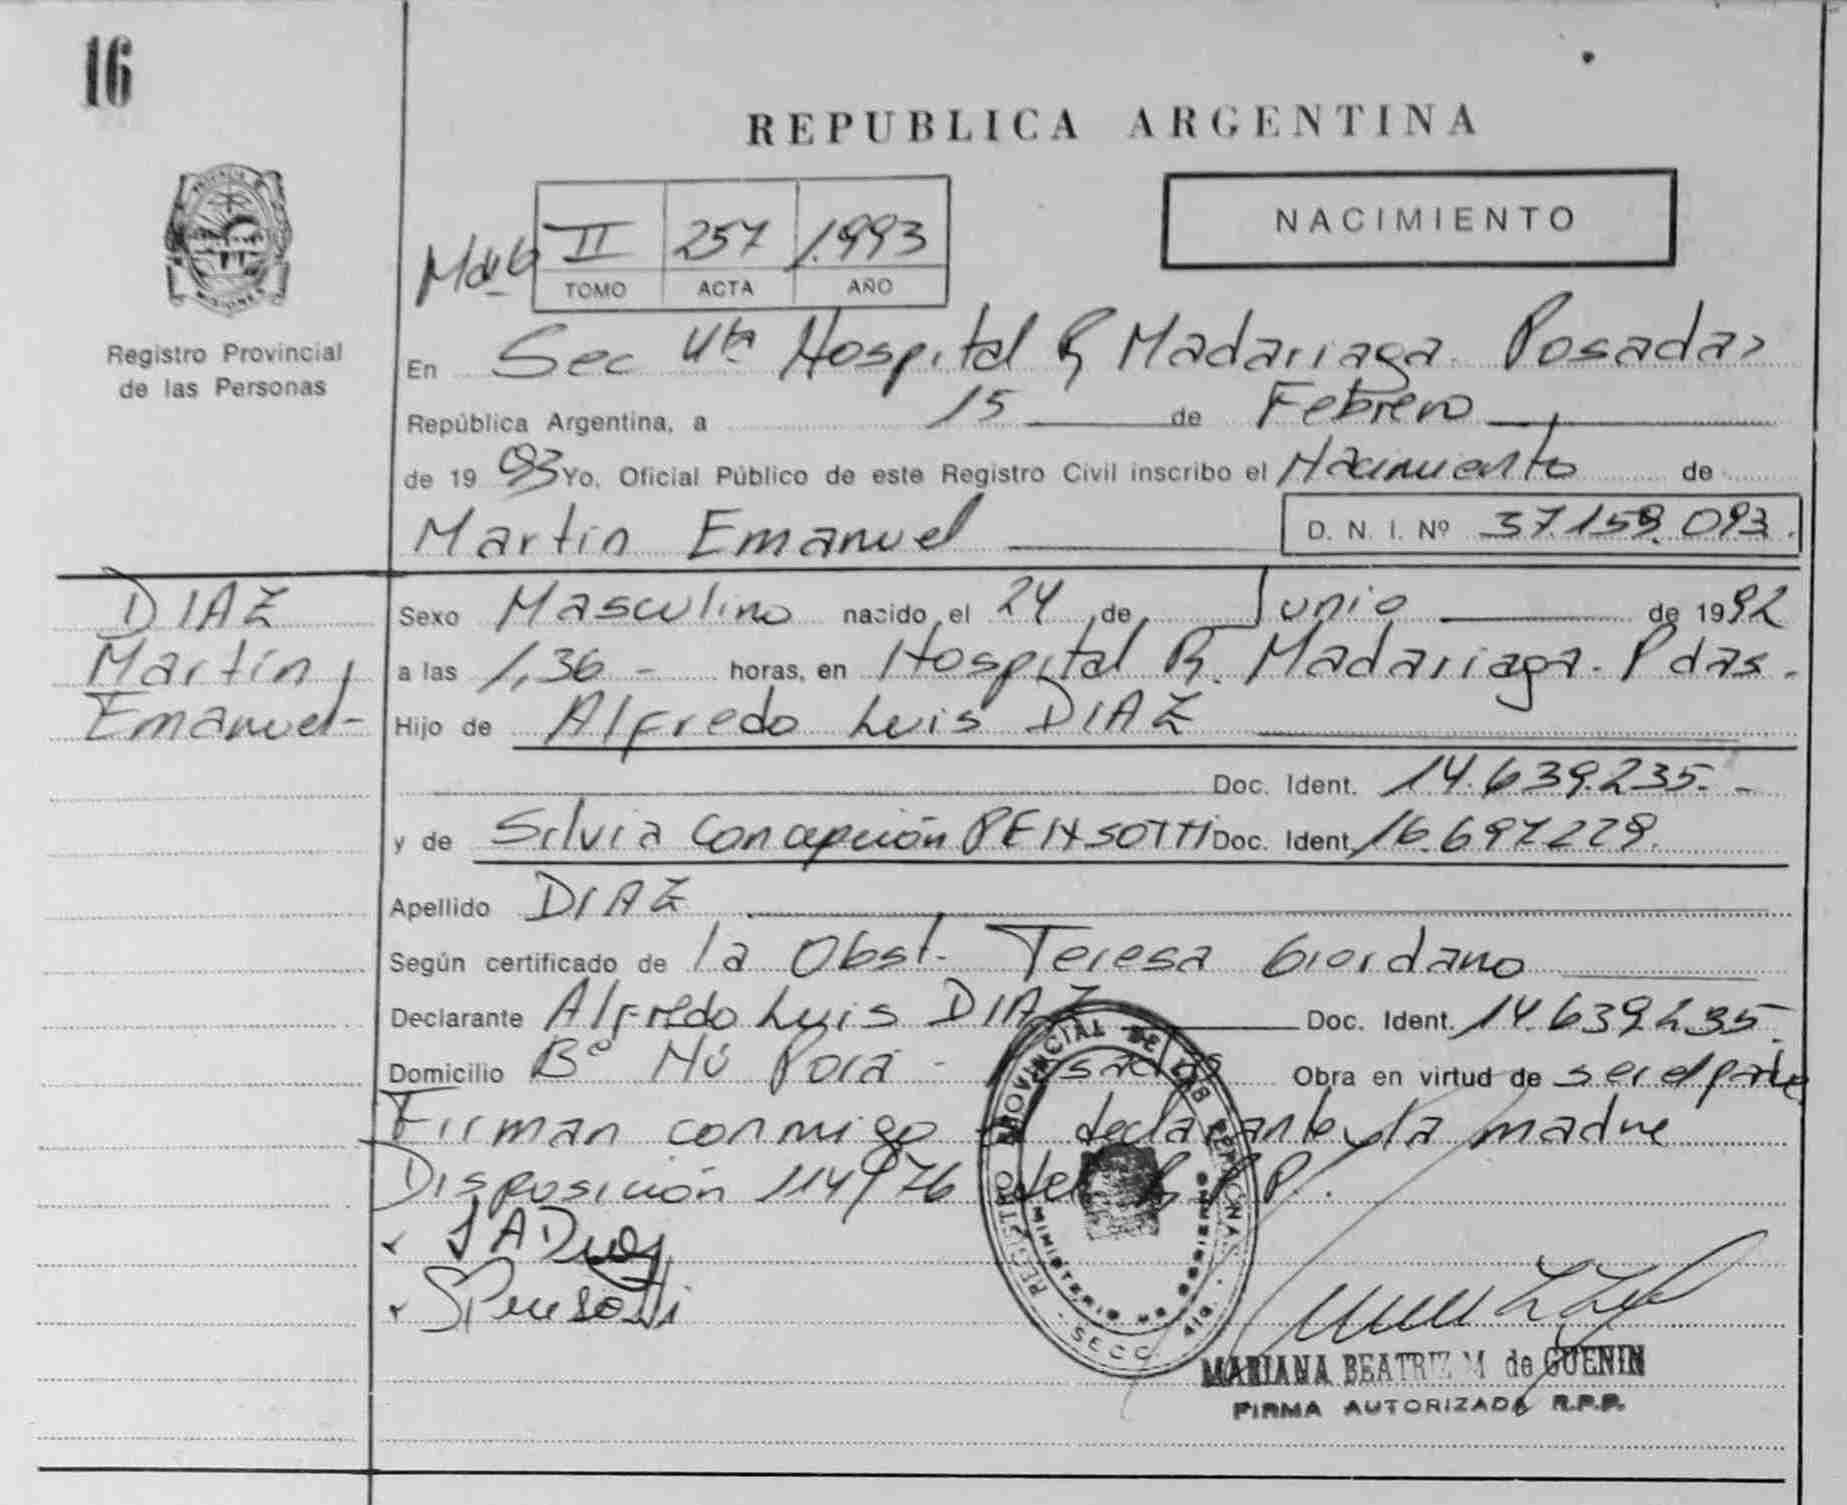 16
REPUBLICA ARGENTINA
NACIMIENTO
II 257 1.993
TOMO ACTA AÑO
PROVINCIA DE MISIONES
Registro Provincial
de las Personas
En Sec 4ta Hospital R Madariaga Posadas
República Argentina, a 15 de Febrero
de 1993 Yo, Oficial Público de este Registro Civil inscribo el Nacimiento de
Martin Emanuel D. N. I. Nº 37.159.093.
DIAZ
Martin,
Emanuel-
Sexo Masculino nacido el 24 de Junio de 1992
a las 1,36 - horas, en Hospital R. Madariaga. Pdas.
Hijo de Alfredo Luis DIAZ
Doc. Ident. 14.639.235.-
y de Silvia Concepción PENSOTTI Doc. Ident. 16.697.229.
Apellido DIAZ
Según certificado de la Obst. Teresa Giordano
Declarante Alfredo Luis DIAZ Doc. Ident. 14.639.235
Domicilio Bº Ñú Porá - Posadas Obra en virtud de ser el padre
Firman conmigo el declarante y la madre
Disposición 114/76 del R.P.P.
SPensotti
REGISTRO PROVINCIAL DE LAS PERSONAS
MINISTERIO DE GOBIERNO
SECC.
MARIANA BEATRIZ M de GUENIN
FIRMA AUTORIZADA R.P.P.